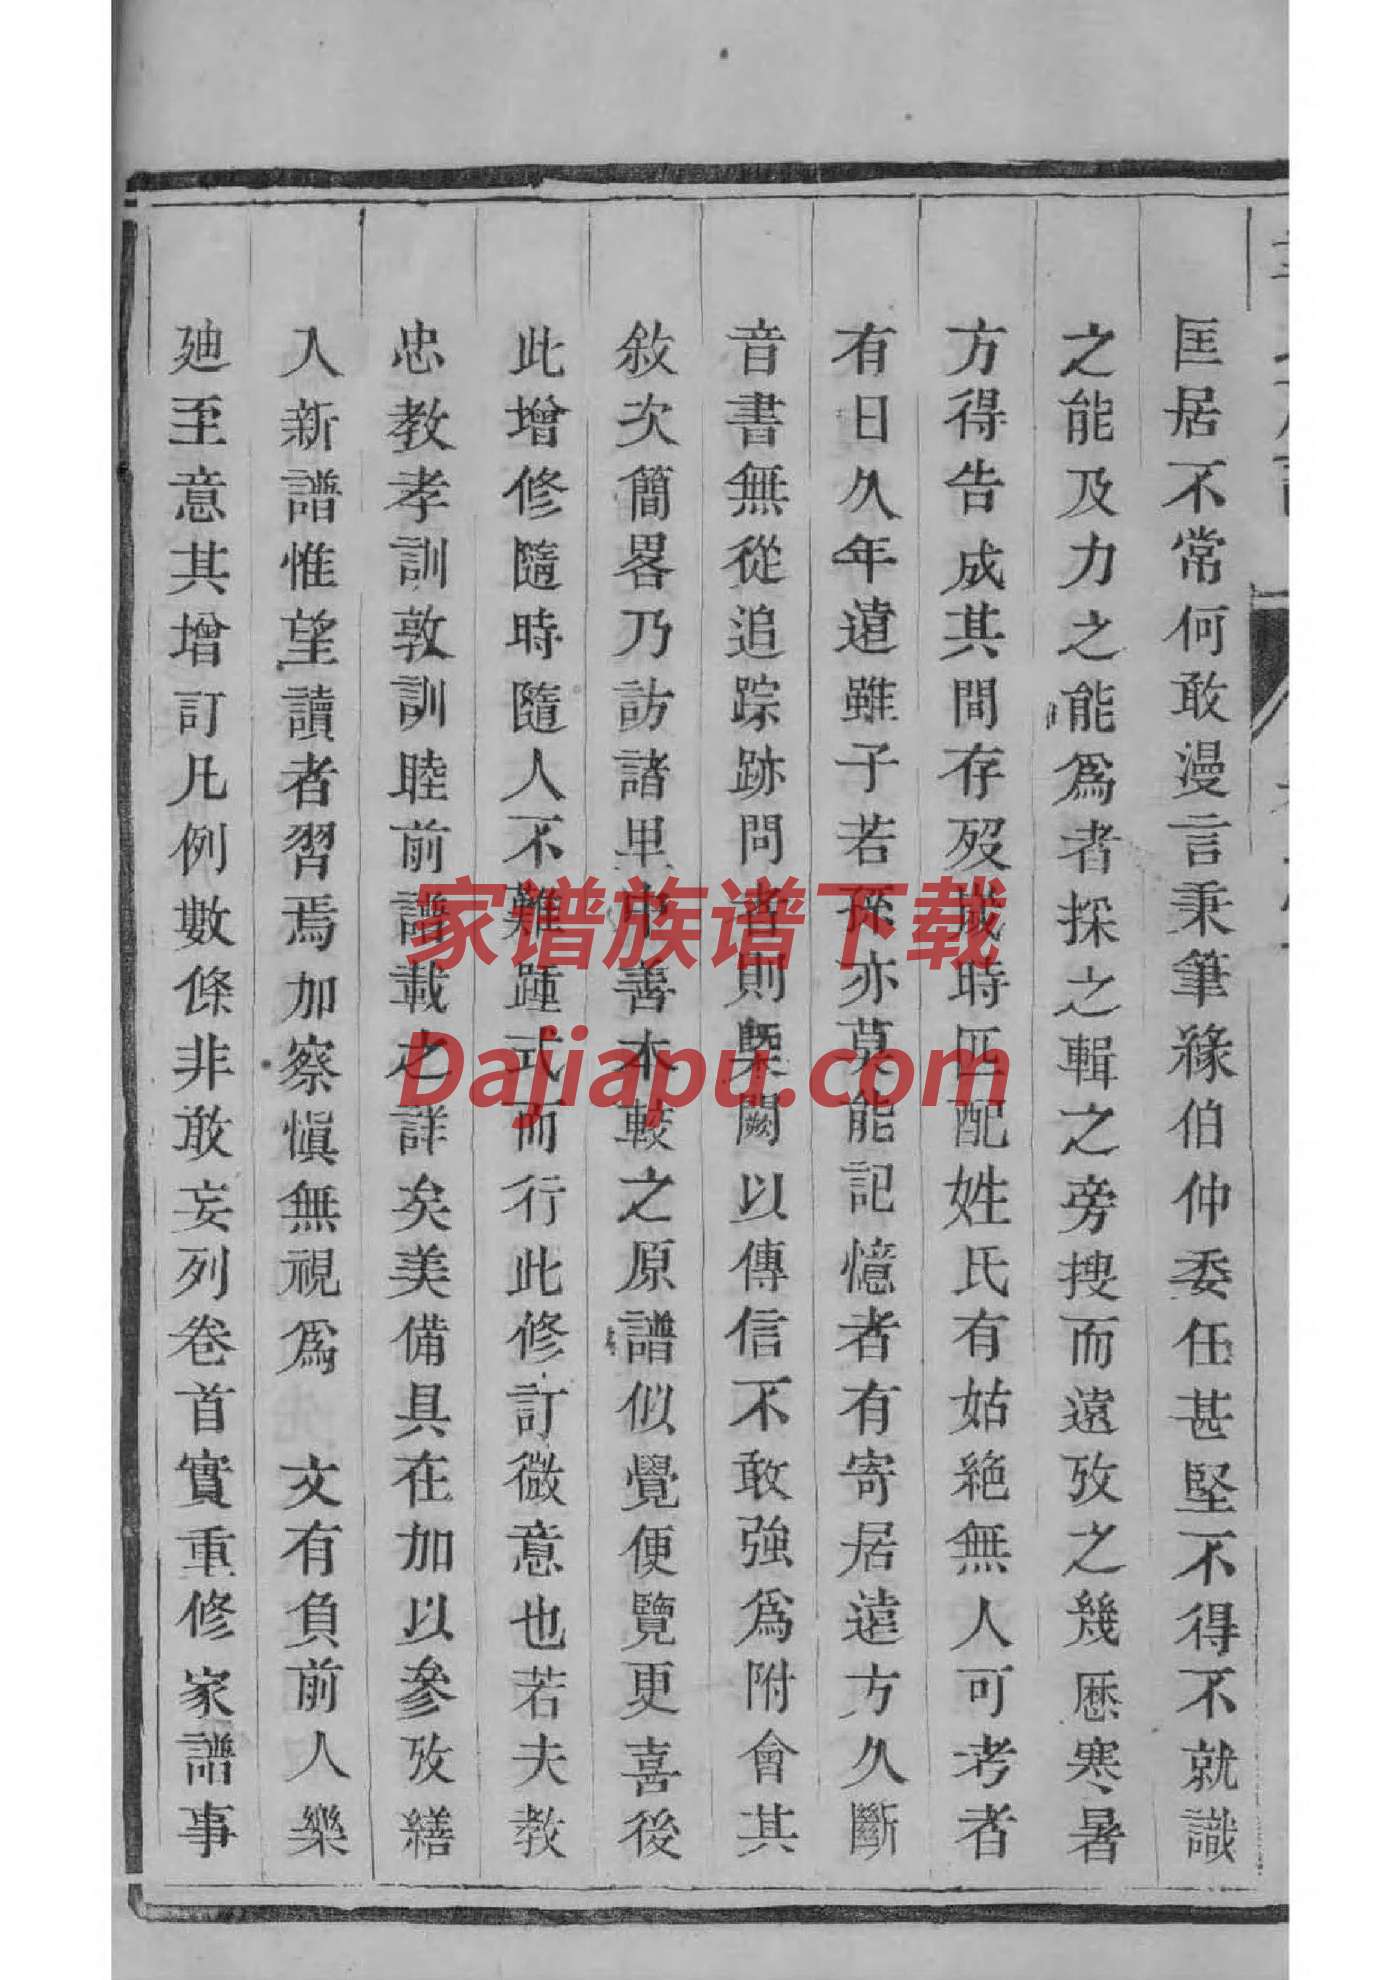 匡居不常何敢漫言秉筆緣伯仲委任甚堅不得不就識
之能及力之能爲者採之輯之旁搜而遠攷之幾歷寒暑
方得告成其間存歿歲時匹配姓氏有姑絶無人可考者
有日久年遠雖子若孫亦莫能記憶者有寄居遠方久斷
音書無從追踪跡問者則槩闕以傳信不敢強爲附會其
敘次簡畧乃訪諸里中善本較之原譜似覺便覽更喜後
此增修隨時隨人不難踵式而行此修訂微意也若夫教
忠教孝訓敦訓睦前譜載之詳矣美備具在加以參攷繕
入新譜惟望讀者習焉加察愼無視爲 文有負前人樂
廸至意其增訂凡例數條非敢妄列卷首實重修家譜事
家谱族谱下载
Dajiapu.com